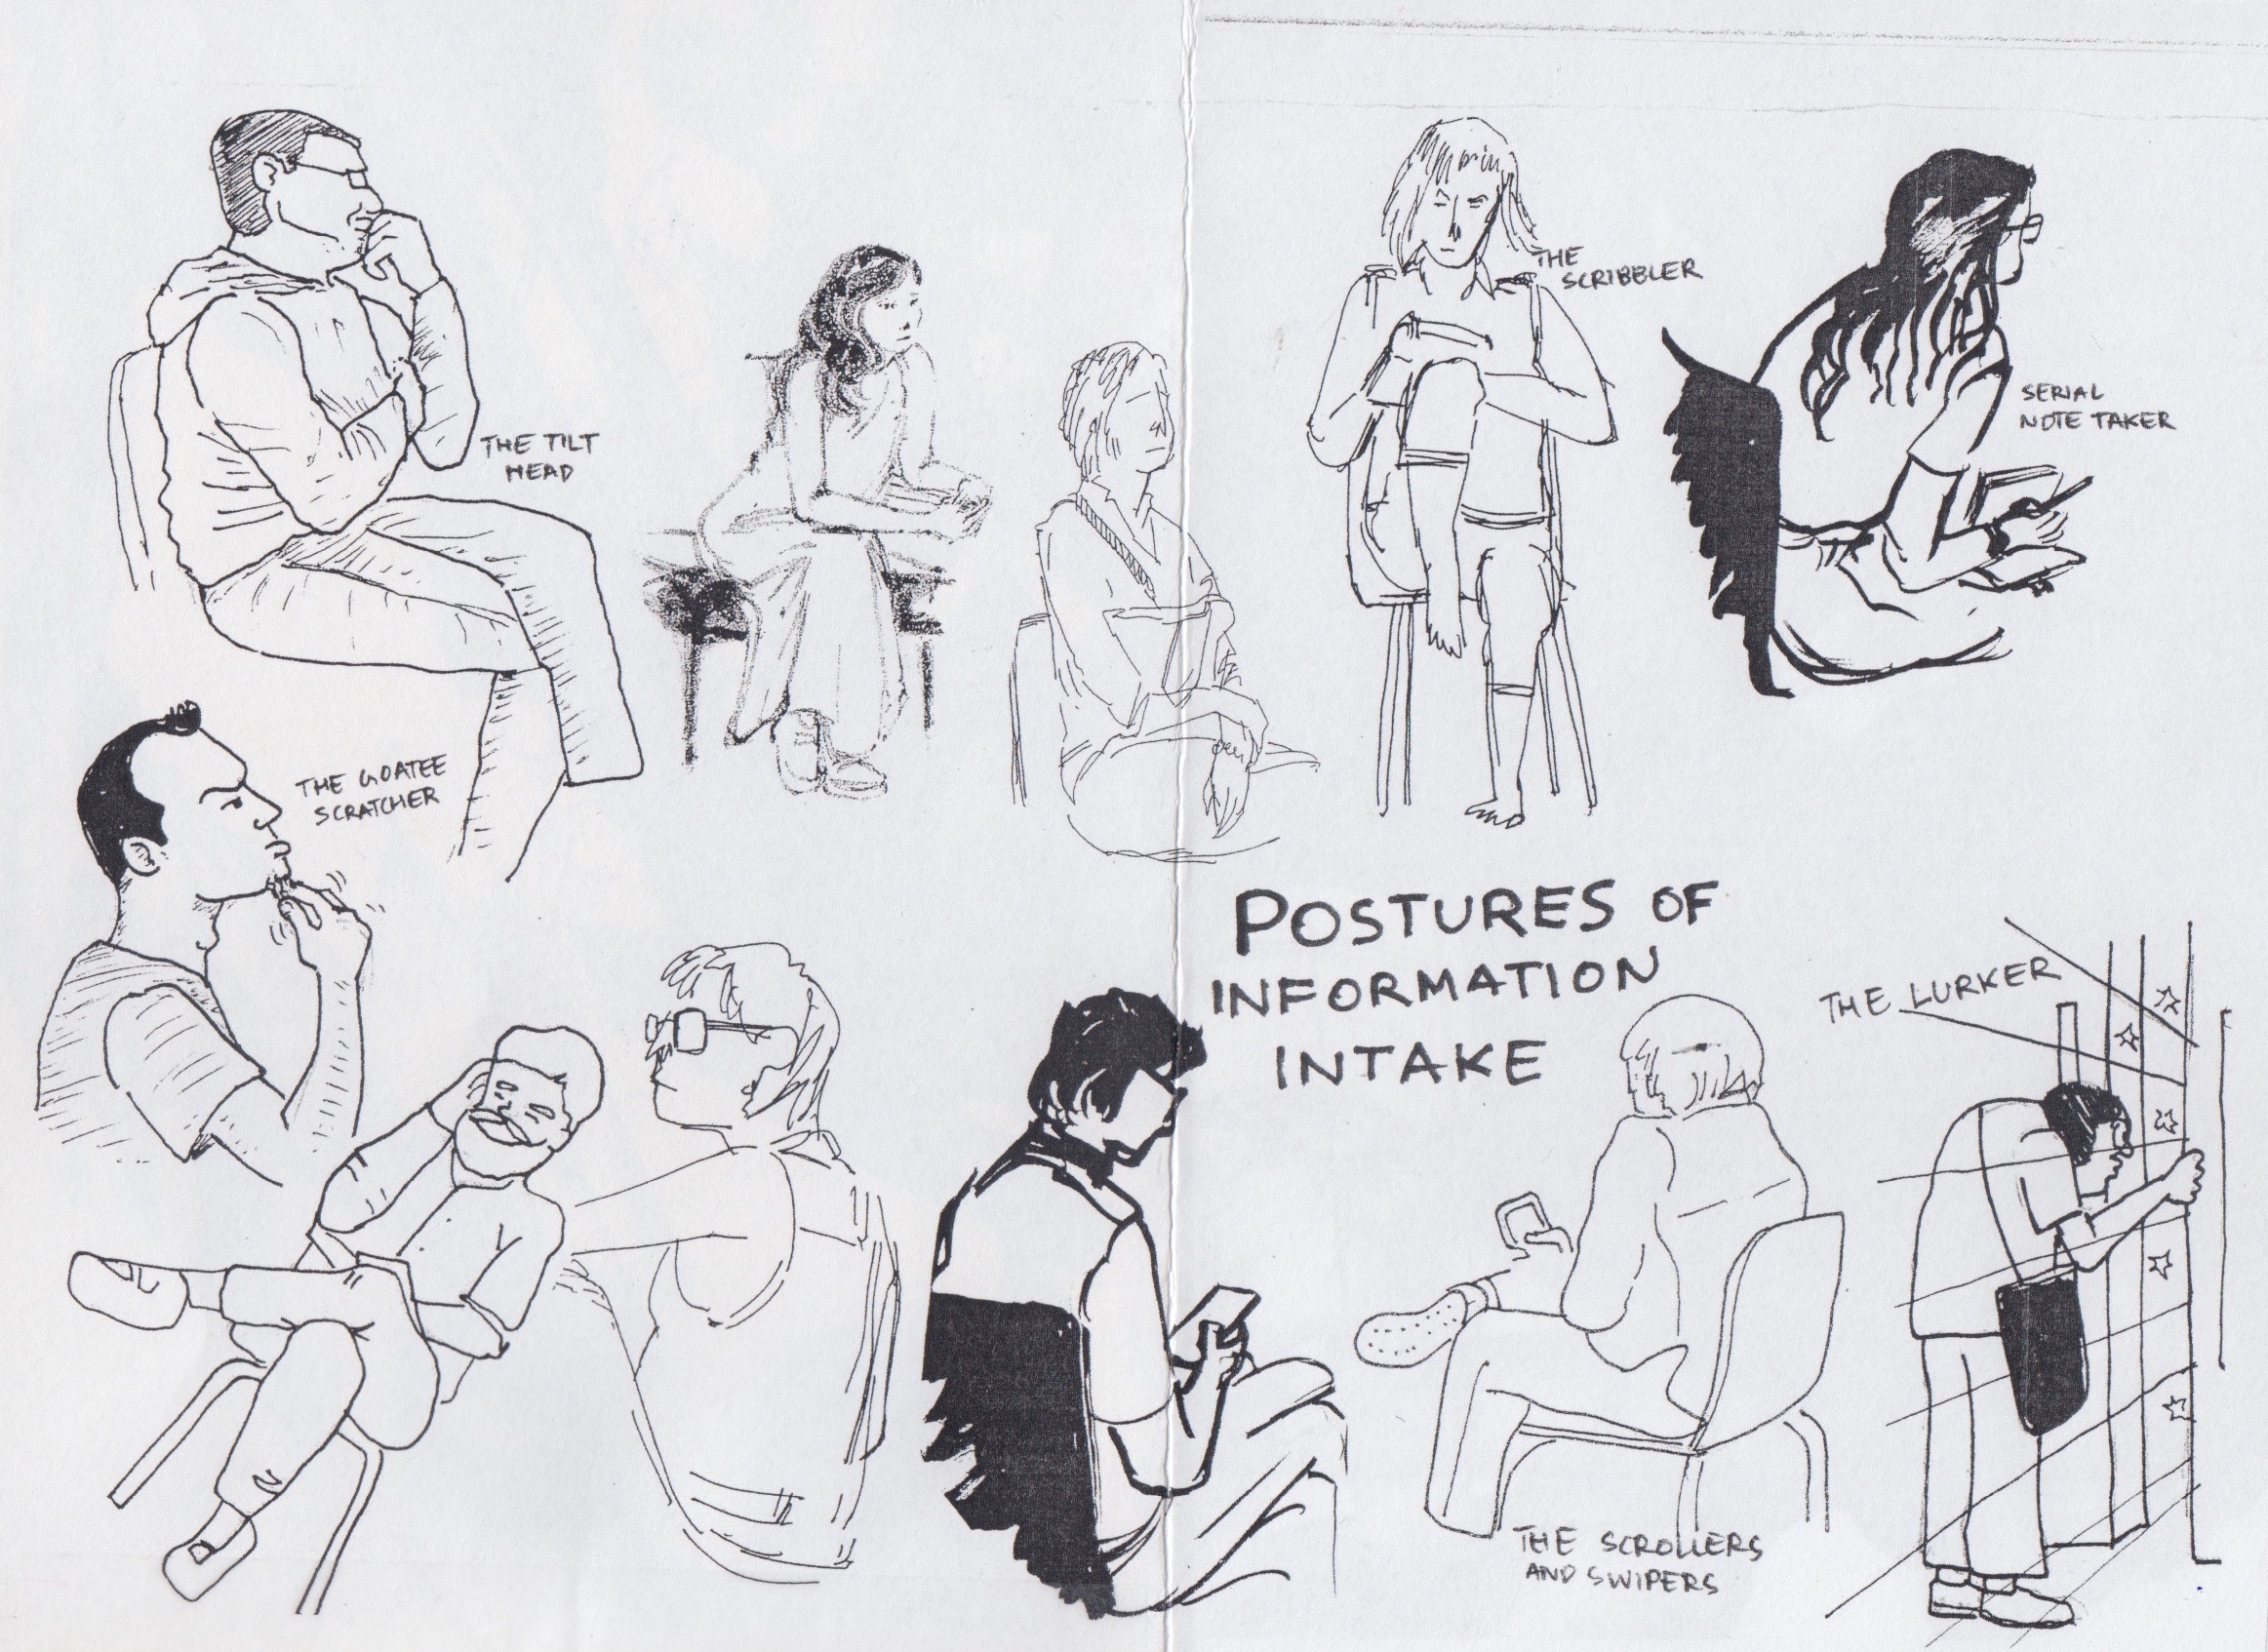 THE TILT
HEAD
THE
SCRIBBLER
SERIAL
NOTE TAKER
THE GOATEE
SCRATCHER
POSTURES OF
INFORMATION
INTAKE
THE LURKER
THE SCROLLERS
AND SWIPERS